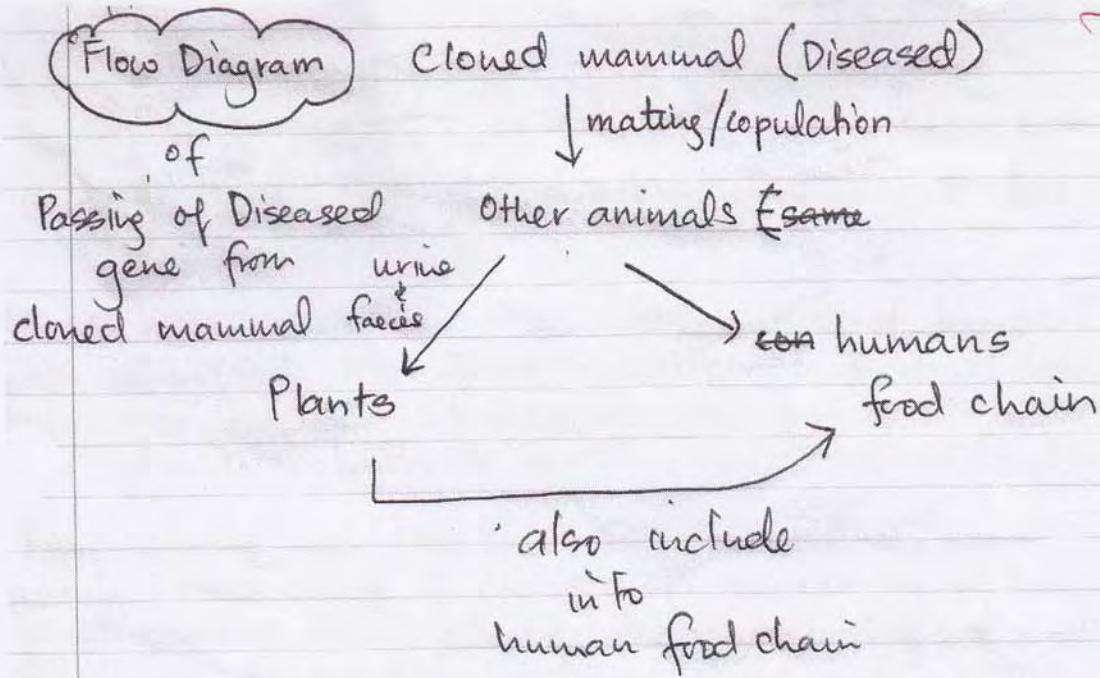 Flow Diagram
of
Passing of Diseased
gene from
cloned mammal
Cloned mammal (Diseased)
mating/copulation
Other animals (same
urine
&
faeces
Plants
con humans
food chain
also include
into
human food chain